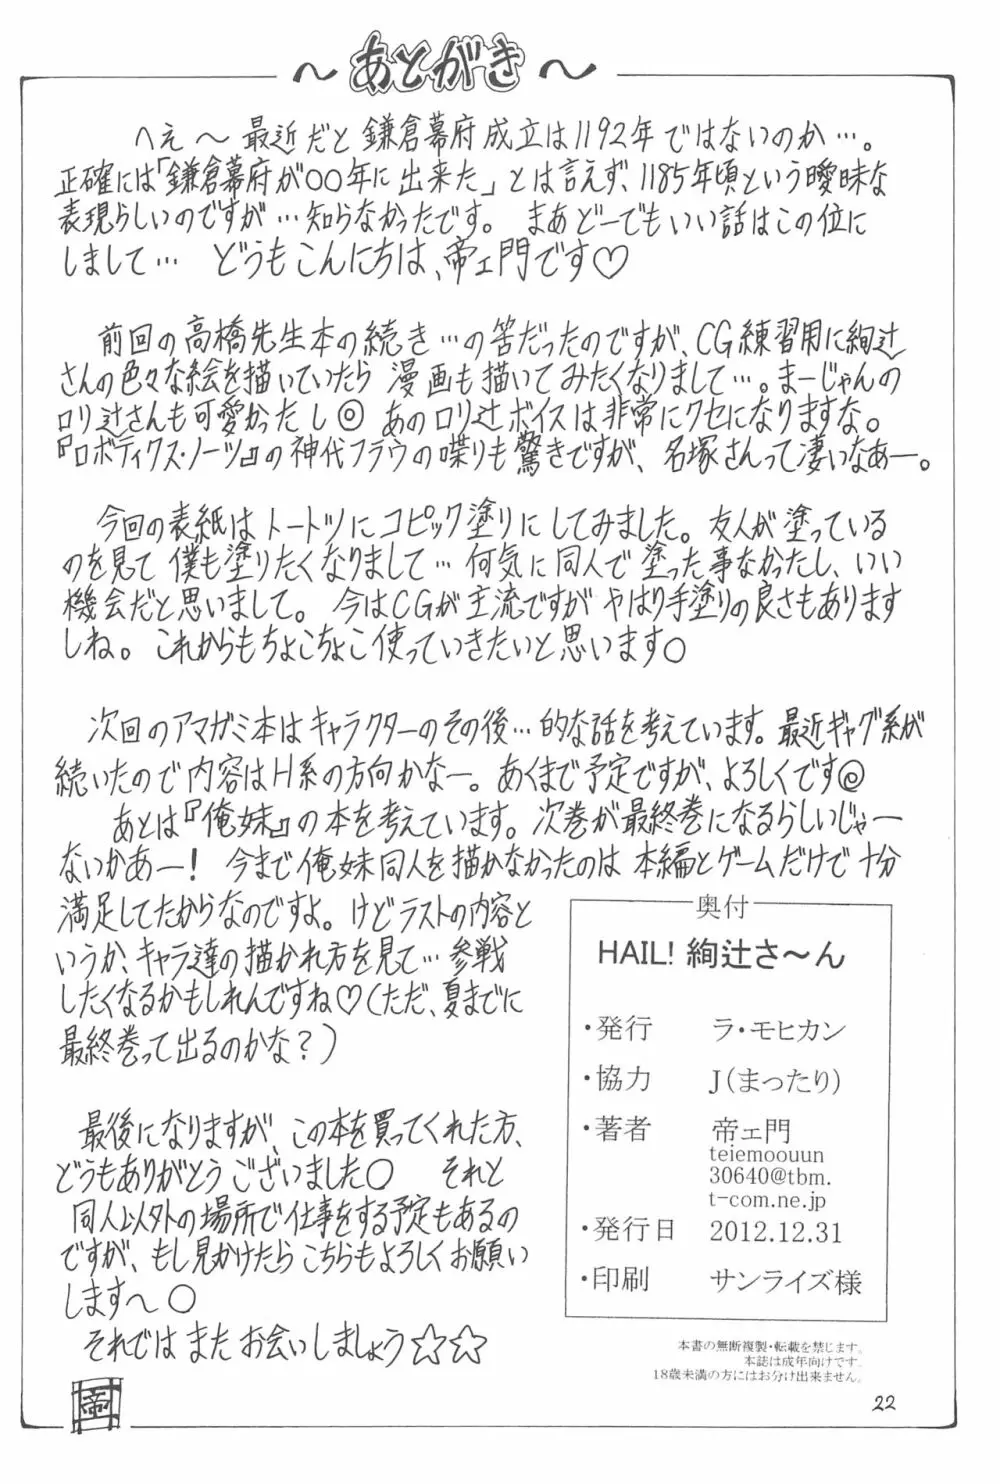 ～あとがき～
へえ～最近だと鎌倉幕府成立は1192年ではないのか…。
正確には「鎌倉幕府が○○年に出来た」とは言えず、1185年頃という曖昧な
表現らしいのですが…知らなかったです。 まあどーでもいい話はこの位に
しまして… どうもこんにちは、帝ェ門です♡
前回の高橋先生本の続き…の筈だったのですが、CG練習用に絢辻
さんの色々な絵を描いていたら 漫画も描いてみたくなりまして…。まーじゃんの
ロリ辻さんも可愛かったし◎ あのロリ辻ボイスは非常にクセになりますな。
『ロボティクス・ノーツ』の神代フラウの喋りも驚きですが、名塚さんって凄いなあー。
今回の表紙はトートツにコピック塗りにしてみました。友人が塗っている
のを見て僕も塗りたくなりまして… 何気に同人で塗った事なかったし、いい
機会だと思いまして。 今はCGが主流ですがやはり手塗りの良さもあります
しね。これからもちょこちょこ使っていきたいと思います○
次回のアマガミ本はキャラクターのその後…的な話を考えています。最近ギャグ系が
続いたので内容はH系の方向かなー。あくまで予定ですが、よろしくです@
あとは『俺妹』の本を考えています。次巻が最終巻になるらしいじゃー
ないかあー! 今まで俺妹同人を描かなかったのは 本編とゲームだけで十分
満足してたからなのですよ。けどラストの内容と
いうか、キャラ達の描かれ方を見て…参戦
したくなるかもしれんですね♡(ただ、夏までに
最終巻って出るのかな?)
最後になりますが、この本を買ってくれた方、
どうもありがとうございました○ それと
同人以外の場所で仕事をする予定もあるの
ですが、もし見かけたらこちらもよろしくお願い
します～○
それではまたお会いしましょう☆☆
帝
奥付
HAIL! 絢辻さ～ん
・発行 ラ・モヒカン
・協力 J(まったり)
・著者 帝ェ門
teiemoouun
30640@tbm.
t-com.ne.jp
・発行日 2012.12.31
・印刷 サンライズ様
本書の無断複製・転載を禁じます。
本誌は成年向けです。
18歳未満の方にはお分け出来ません。
22